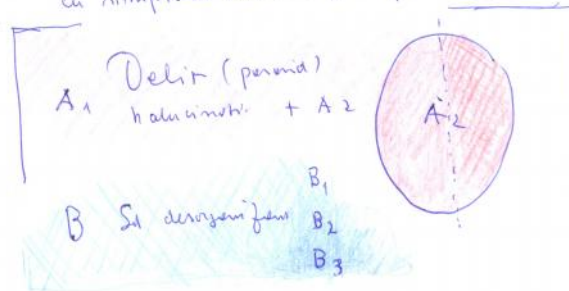 A1 Delir (paranoid)
halucinator + A2
A2
B Sd desorganizare B1
B2
B3